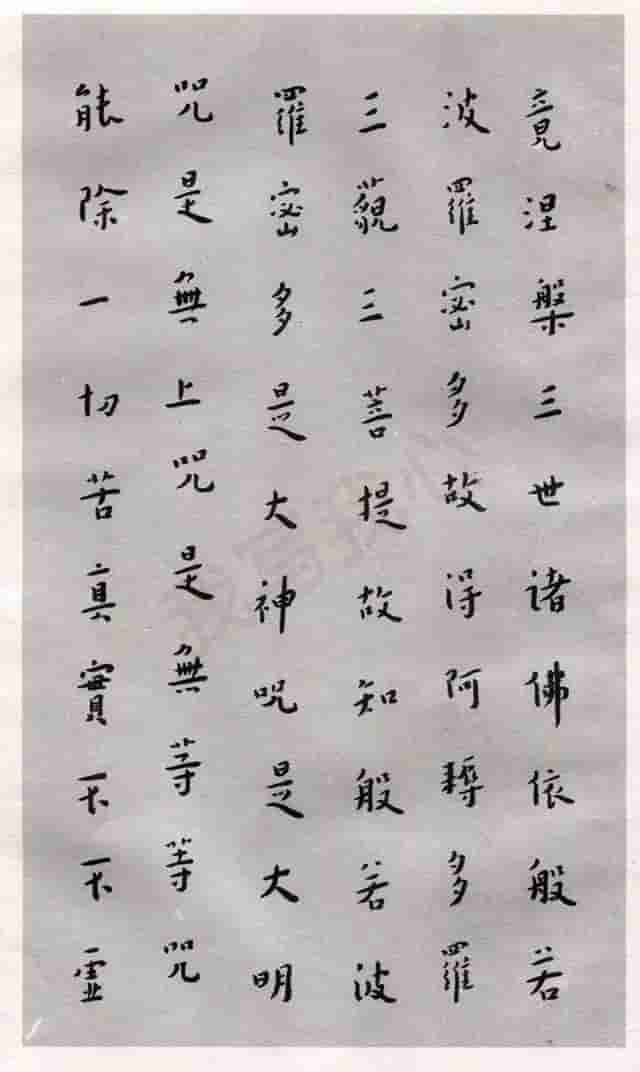 竟涅槃三世諸佛依般若
波羅密多故得阿耨多羅
三藐三菩提故知般若波
羅密多是大神咒是大明
咒是無上咒是無等等咒
能除一切苦真實不不虛